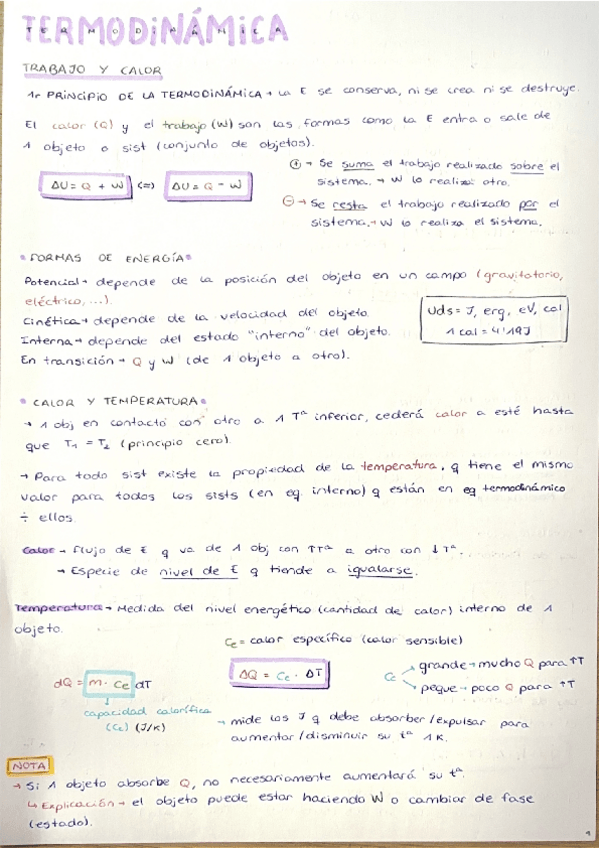 TERMODINÁMICA
TRABAJO Y CALOR
1r PRINCIPIO DE LA TERMODINÁMICA → La E se conserva, ni se crea ni se destruye.
El calor (Q) y el trabajo (W) son las formas como la E entra o sale de
1 objeto o sist (conjunto de objetos).
ΔU = Q + W (=) ΔU = Q - W
⊕ → Se suma el trabajo realizado sobre el
sistema. → W lo realiza otro.
⊖ → Se resta el trabajo realizado por el
sistema. → W lo realiza el sistema.
• FORMAS DE ENERGÍA •
Potencial → depende de la posición del objeto en un campo (gravitatorio,
eléctrico, ...).
Cinética → depende de la velocidad del objeto.
Interna → depende del estado "interno" del objeto.
En transición → Q y W (de 1 objeto a otro).
Uds = J, erg, eV, cal
1 cal = 4'19J
• CALOR Y TEMPERATURA •
→ 1 obj en contacto con otro a 1 Tª inferior, cederá calor a esté hasta
que T₁ = T₂ (principio cero).
→ Para todo sist existe la propiedad de la temperatura, q tiene el mismo
valor para todos los sists (en eq interno) q están en eq termodinámico
÷ ellos.
Calor → Flujo de E q va de 1 obj con ↑Tª a otro con ↓Tª.
→ Especie de nivel de E q tiende a igualarse.
Temperatura → Medida del nivel energético (cantidad de calor) interno de 1
objeto.
Ce = calor específico (calor sensible)
dQ = m · Ce dT
ΔQ = Ce · ΔT
Ce
grande → mucho Q para ↑T
peque → poco Q para ↑T
↓
capacidad calorífica
(Cc) (J/K)
→ mide los J q debe absorber/expulsar para
aumentar/disminuir su tª 1K.
NOTA
→ Si 1 objeto absorbe Q, no necesariamente aumentará su tª.
↳ Explicación → el objeto puede estar haciendo W o cambiar de fase
(estado).